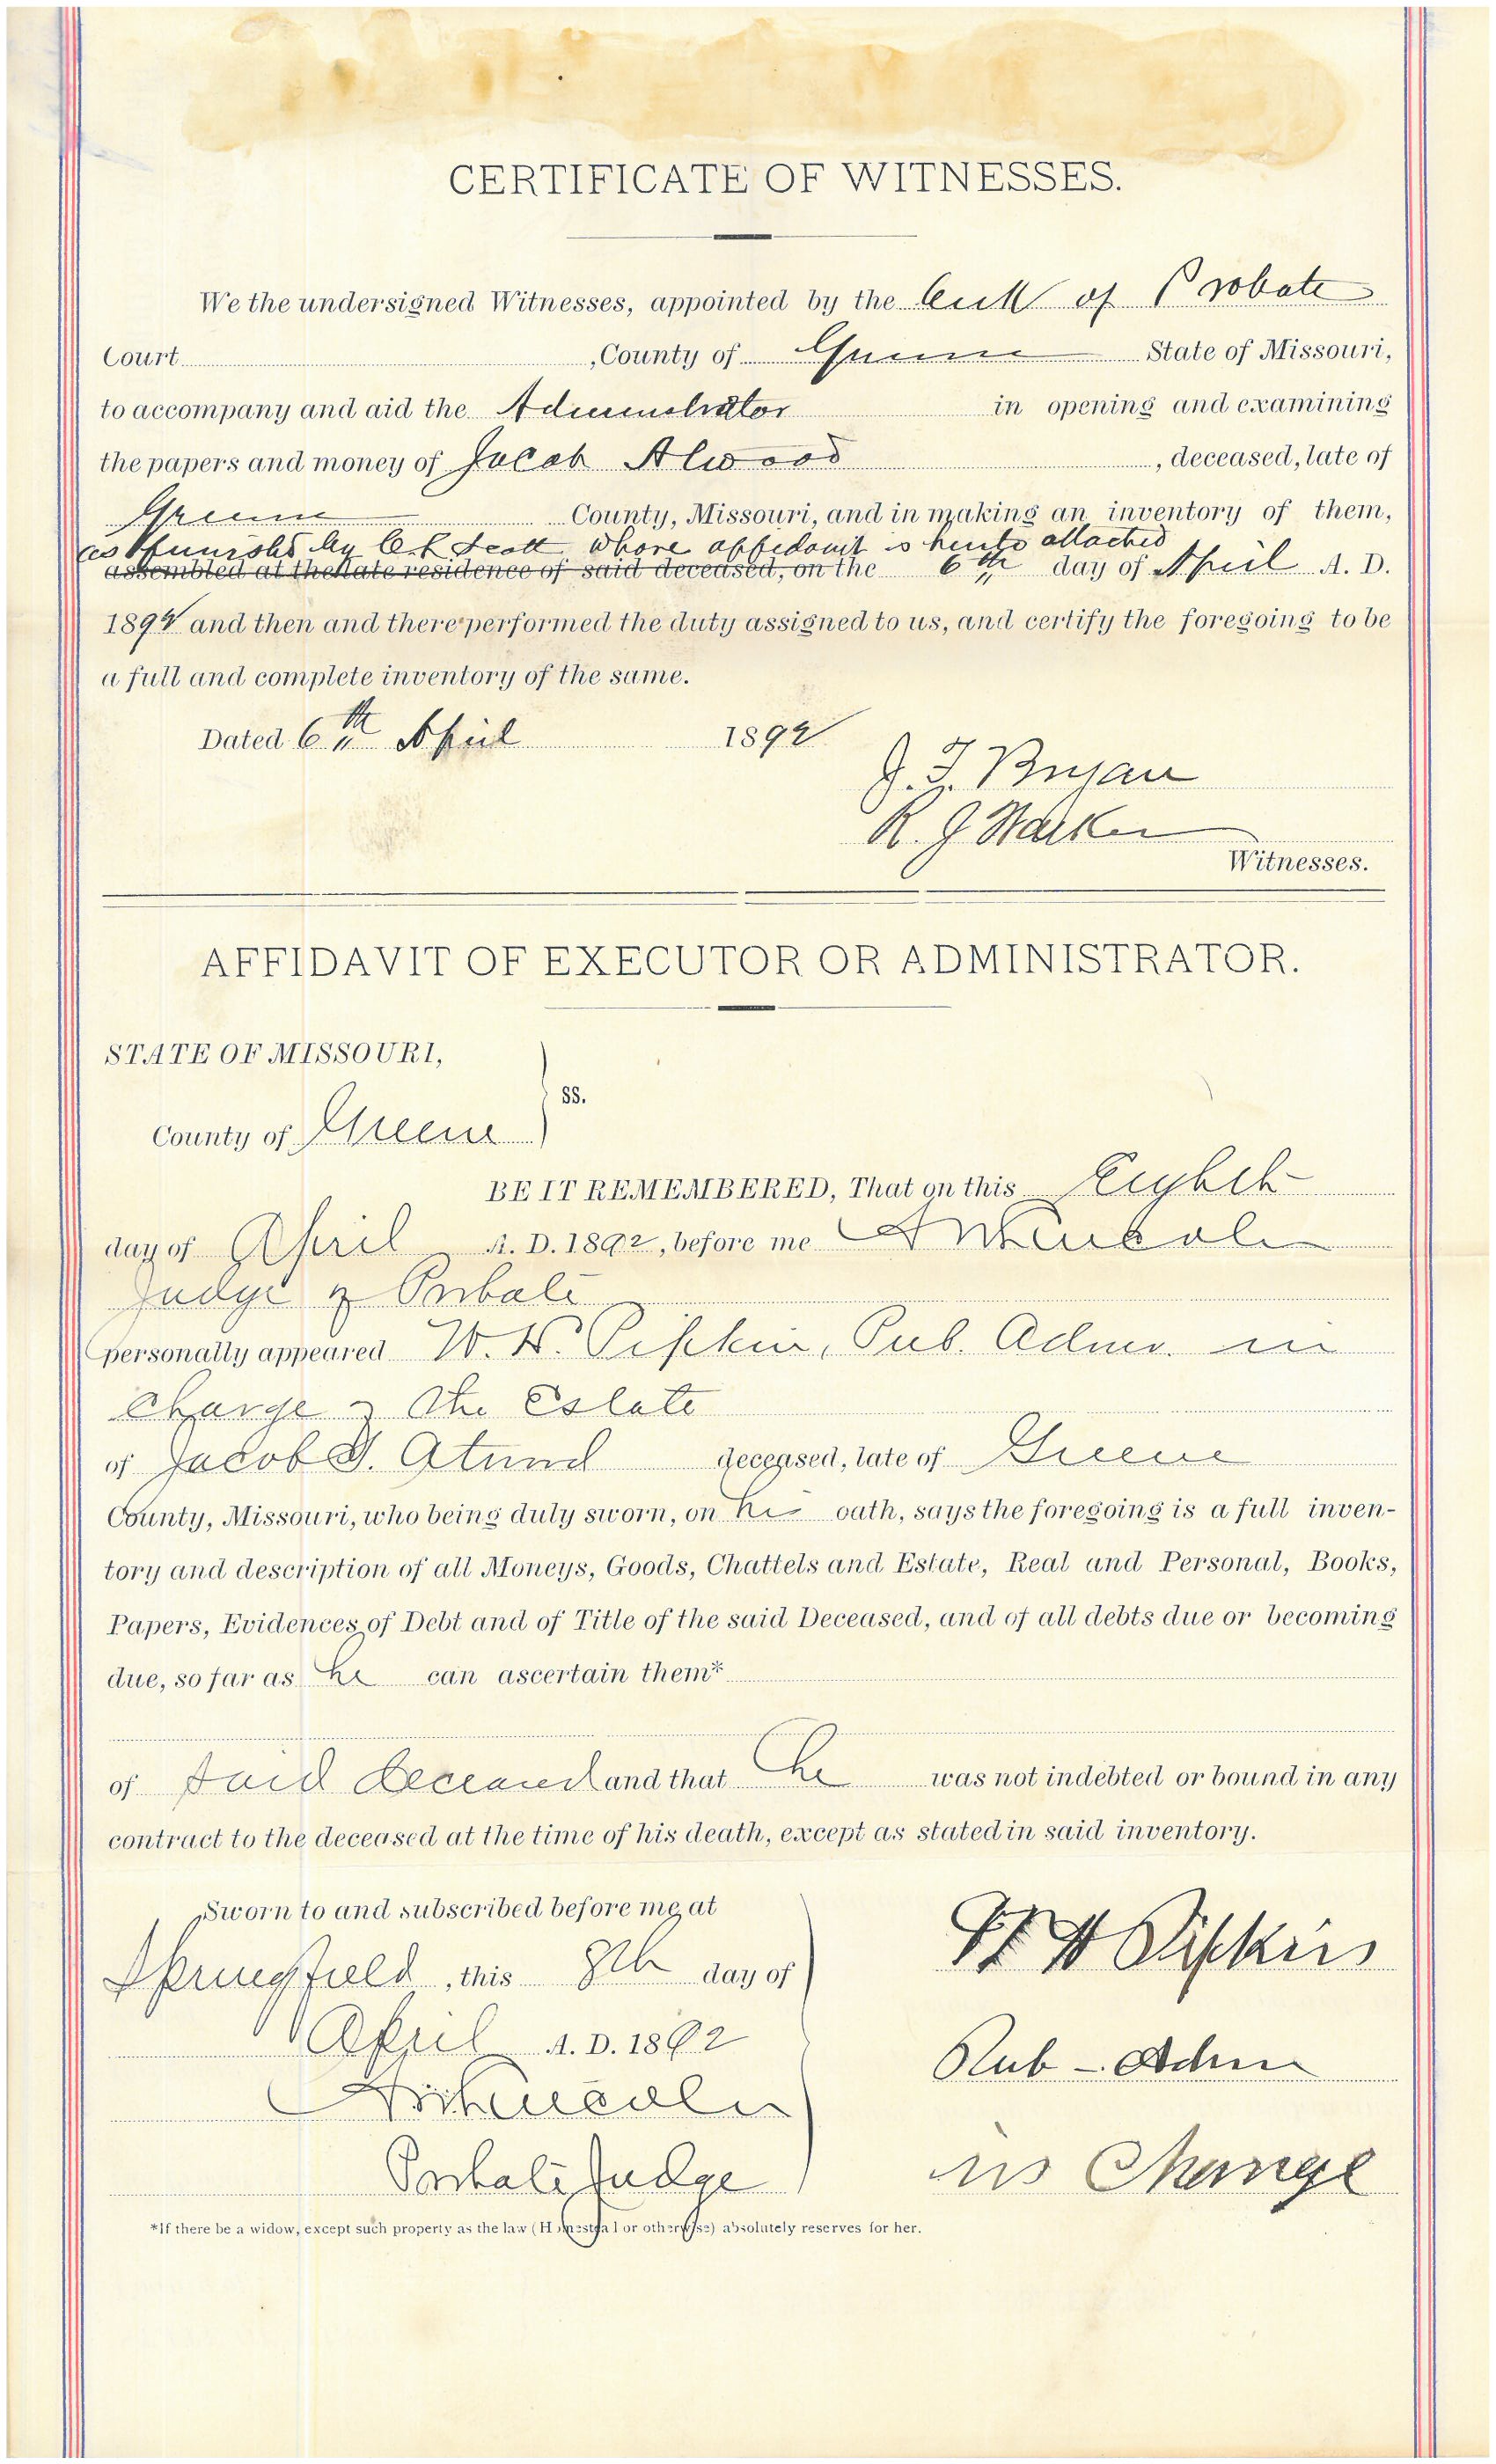 CERTIFICATE OF WITNESSES.
We the undersigned Witnesses, appointed by the Clerk of Probate
Court , County of Greene State of Missouri,
to accompany and aid the Administrator in opening and examining
the papers and money of Jacob Atwood , deceased, late of
Greene County, Missouri, and in making an inventory of them,
as furnished by Scott whose affidavit is hereto attached
assembled at the late residence of said deceased, on the 6th day of April A. D.
1892 and then and there performed the duty assigned to us, and certify the foregoing to be
a full and complete inventory of the same.
Dated 6th April 1892
J. T. Bryan
R. J. Walker
Witnesses.
AFFIDAVIT OF EXECUTOR OR ADMINISTRATOR.
STATE OF MISSOURI,
ss.
County of Greene
BE IT REMEMBERED, That on this Eighth
day of April A. D. 1892, before me Lincoln
Judge of Probate
personally appeared W. H. Pipkin, Pub. Admr. in
Charge of the Estate
of Jacob Atwood deceased, late of Greene
County, Missouri, who being duly sworn, on his oath, says the foregoing is a full inven-
tory and description of all Moneys, Goods, Chattels and Estate, Real and Personal, Books,
Papers, Evidences of Debt and of Title of the said Deceased, and of all debts due or becoming
due, so far as he can ascertain them*
of said deceased and that he was not indebted or bound in any
contract to the deceased at the time of his death, except as stated in said inventory.
Sworn to and subscribed before me at
Springfield, this 8th day of
April A. D. 1892
Lincoln
Probate Judge
W H Pipkin
Pub - Adm
in Charge
*If there be a widow, except such property as the law (Homestead or otherwise) absolutely reserves for her.